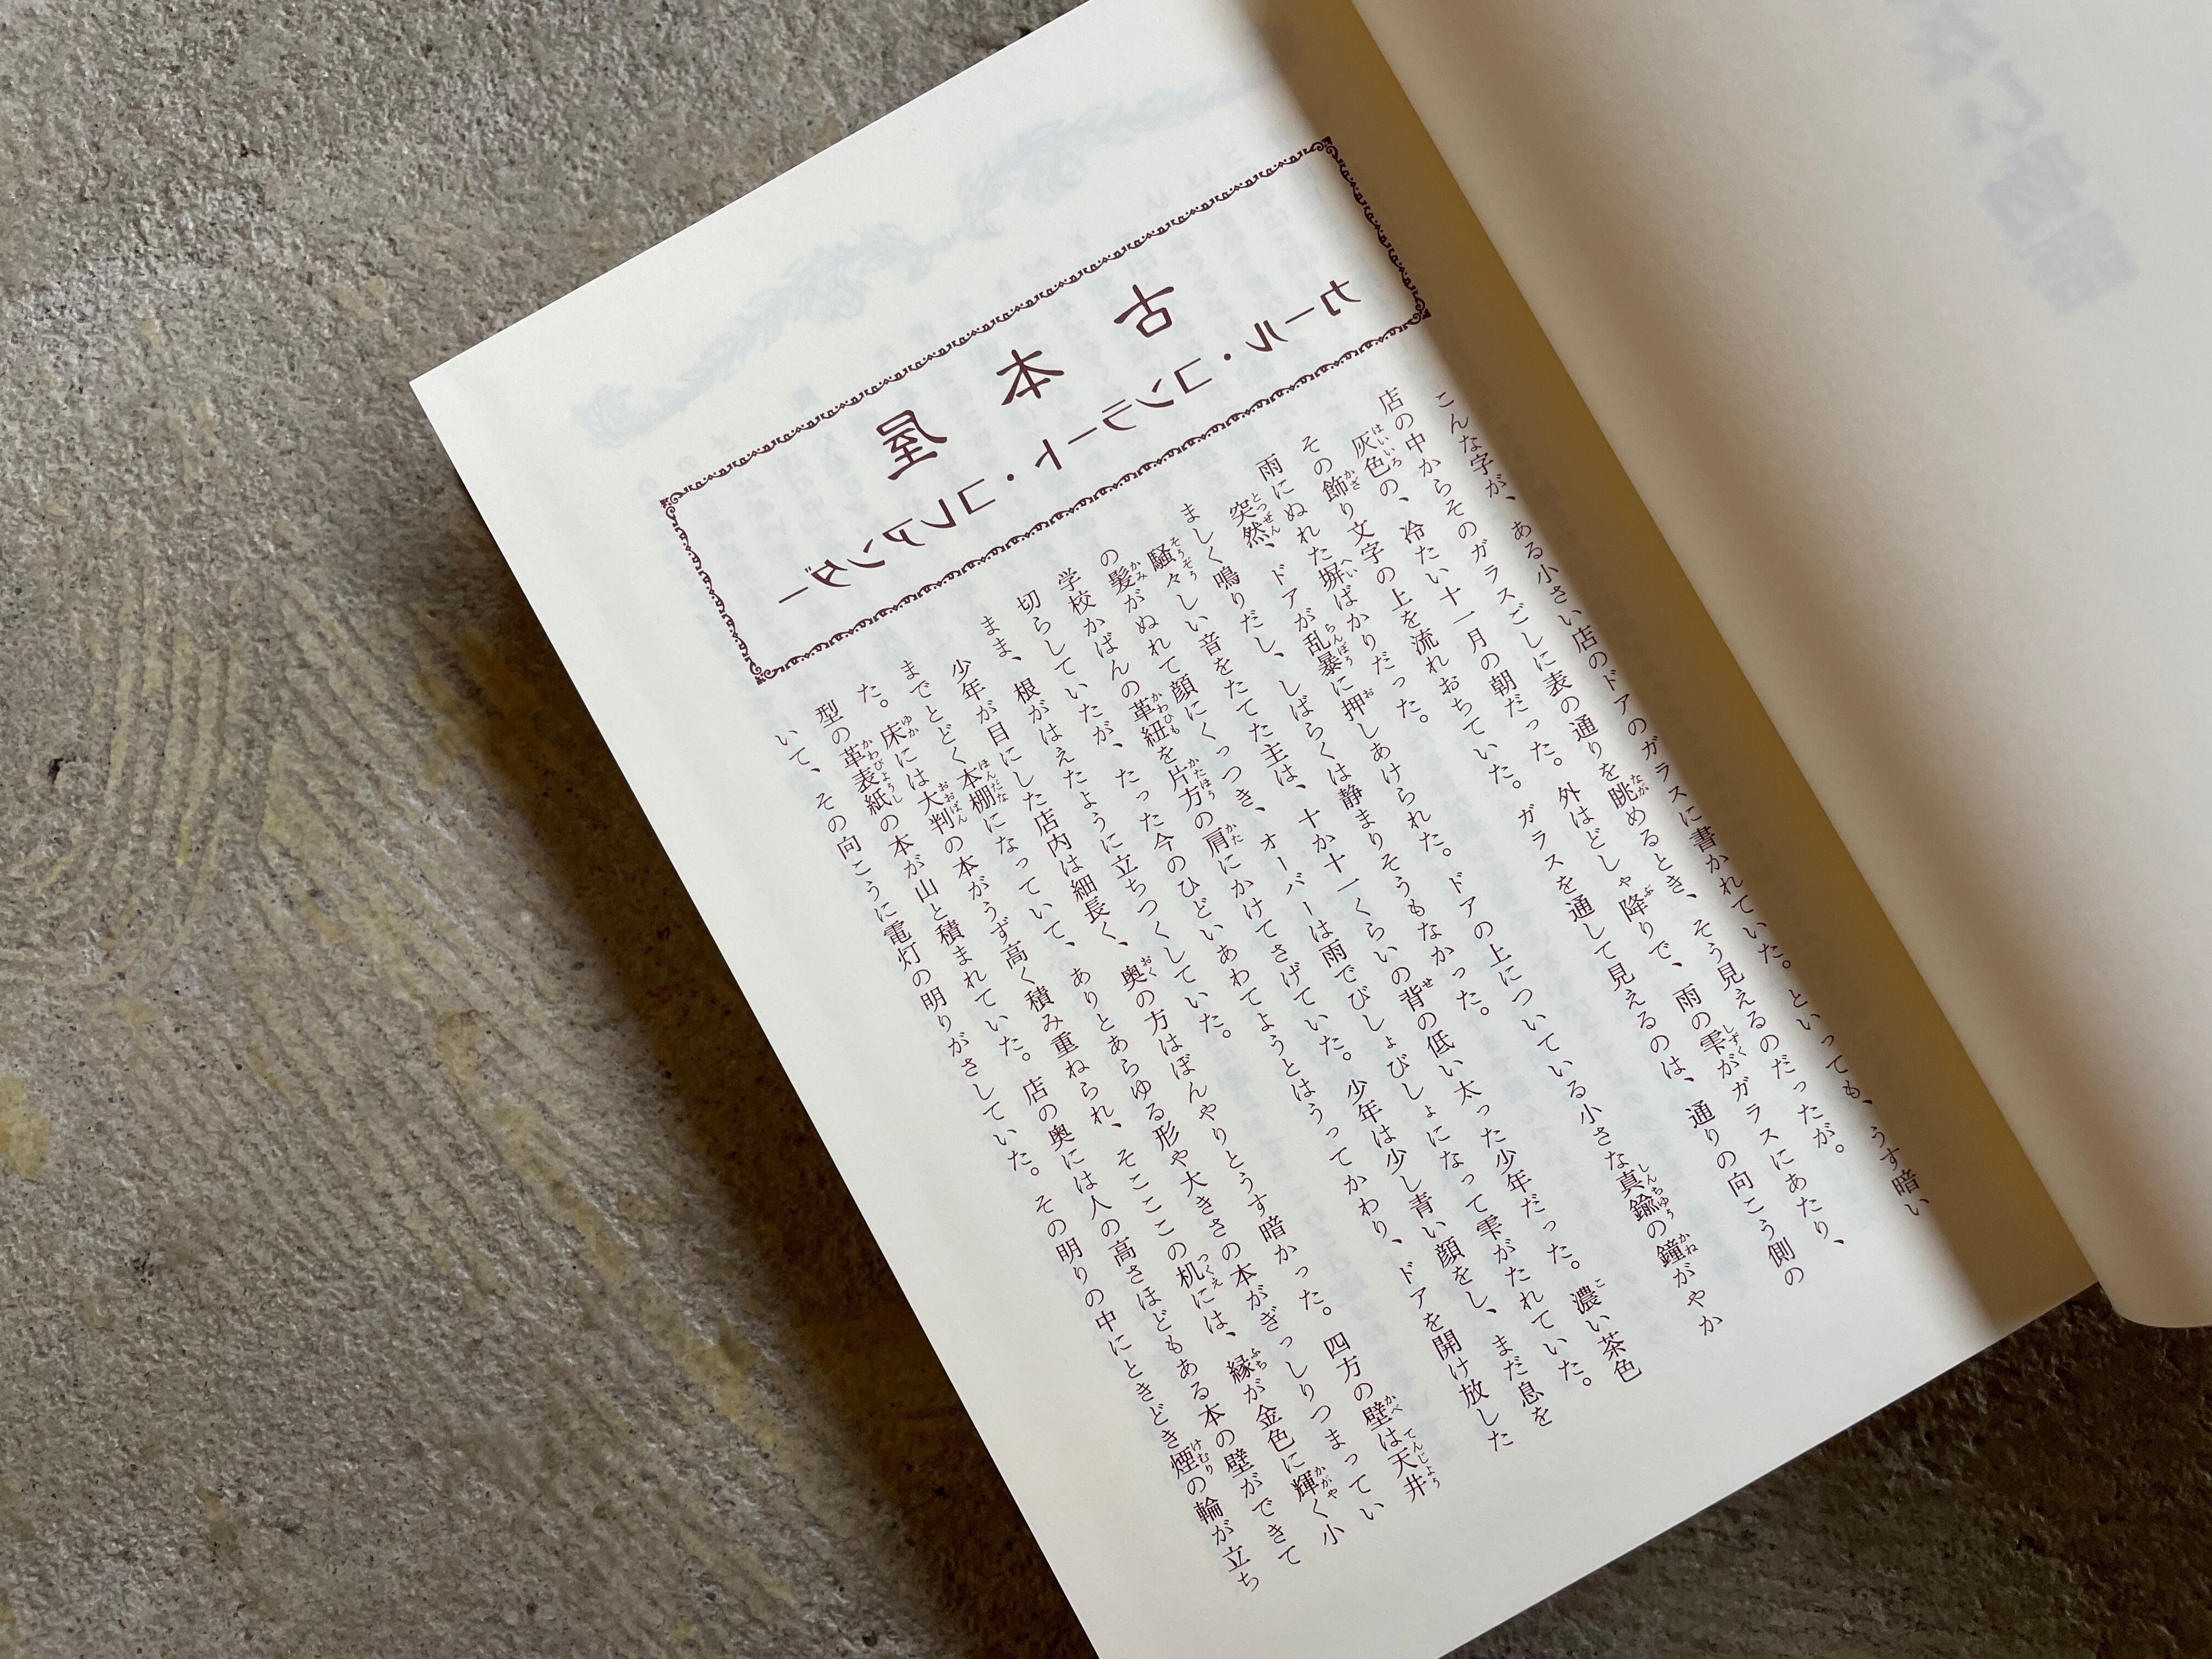 古本屋
カール・コンラート・コレアンダー
こんな字が、ある小さい店のドアのガラスに書かれていた。といっても、うす暗い
店の中からそのガラスごしに表の通りを眺めるとき、そう見えるのだったが。
灰色の、冷たい十一月の朝だった。外はどしゃ降りで、雨の雫がガラスにあたり、
その飾り文字の上を流れおちていた。ガラスを通して見えるのは、通りの向こう側の
雨にぬれた塀ばかりだった。
突然、ドアが乱暴に押しあけられた。ドアの上についている小さな真鍮の鐘がやか
ましく鳴りだし、しばらくは静まりそうもなかった。
騒々しい音をたてた主は、十か十一くらいの背の低い太った少年だった。濃い茶色
の髪がぬれて顔にくっつき、オーバーは雨でびしょびしょになって雫がたれていた。
学校かばんの革紐を片方の肩にかけてさげていた。少年は少し青い顔をし、まだ息を
切らしていたが、たった今のひどいあわてようとはうってかわり、ドアを開け放した
まま、根がはえたように立ちつくしていた。
少年が目にした店内は細長く、奥の方はぼんやりとうす暗かった。四方の壁は天井
までとどく本棚になっていて、ありとあらゆる形や大きさの本がぎっしりつまってい
た。床には大判の本がうず高く積み重ねられ、そこここの机には、縁が金色に輝く小
型の革表紙の本が山と積まれていた。店の奥には人の高さほどもある本の壁ができて
いて、その向こうに電灯の明りがさしていた。その明りの中にときどき煙の輪が立ち